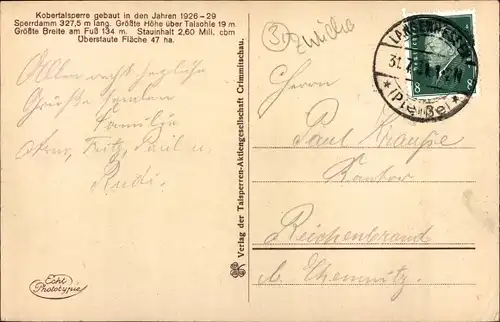 Kobertalsperre gebaut in den Jahren 1926-29
Sperrdamm 327,5 m lang. Größte Höhe über Talsohle 19 m
Größte Breite am Fuß 134 m. Stauinhalt 2,60 Mill. cbm
Überstaute Fläche 47 ha.
Allen recht herzliche
Grüße senden
Familie
Fritz, Paul u.
Rudi.
Echt
Phototypie
Verlag der Talsperren-Aktiengesellschaft Crimmitschau.
(3)
LANGENHESSEN
31.
(Pleiße)
8 8
Herrn
Paul Krauße
Kantor
Reichenbrand
b. Chemnitz.